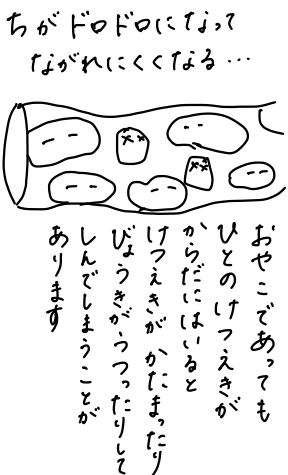 ちがドロドロになって
ながれにくくなる…
おやこであっても
ひとのけつえきが
からだにはいると
けつえきがかたまったり
びょうきがうつったりして
しんでしまうことが
あります